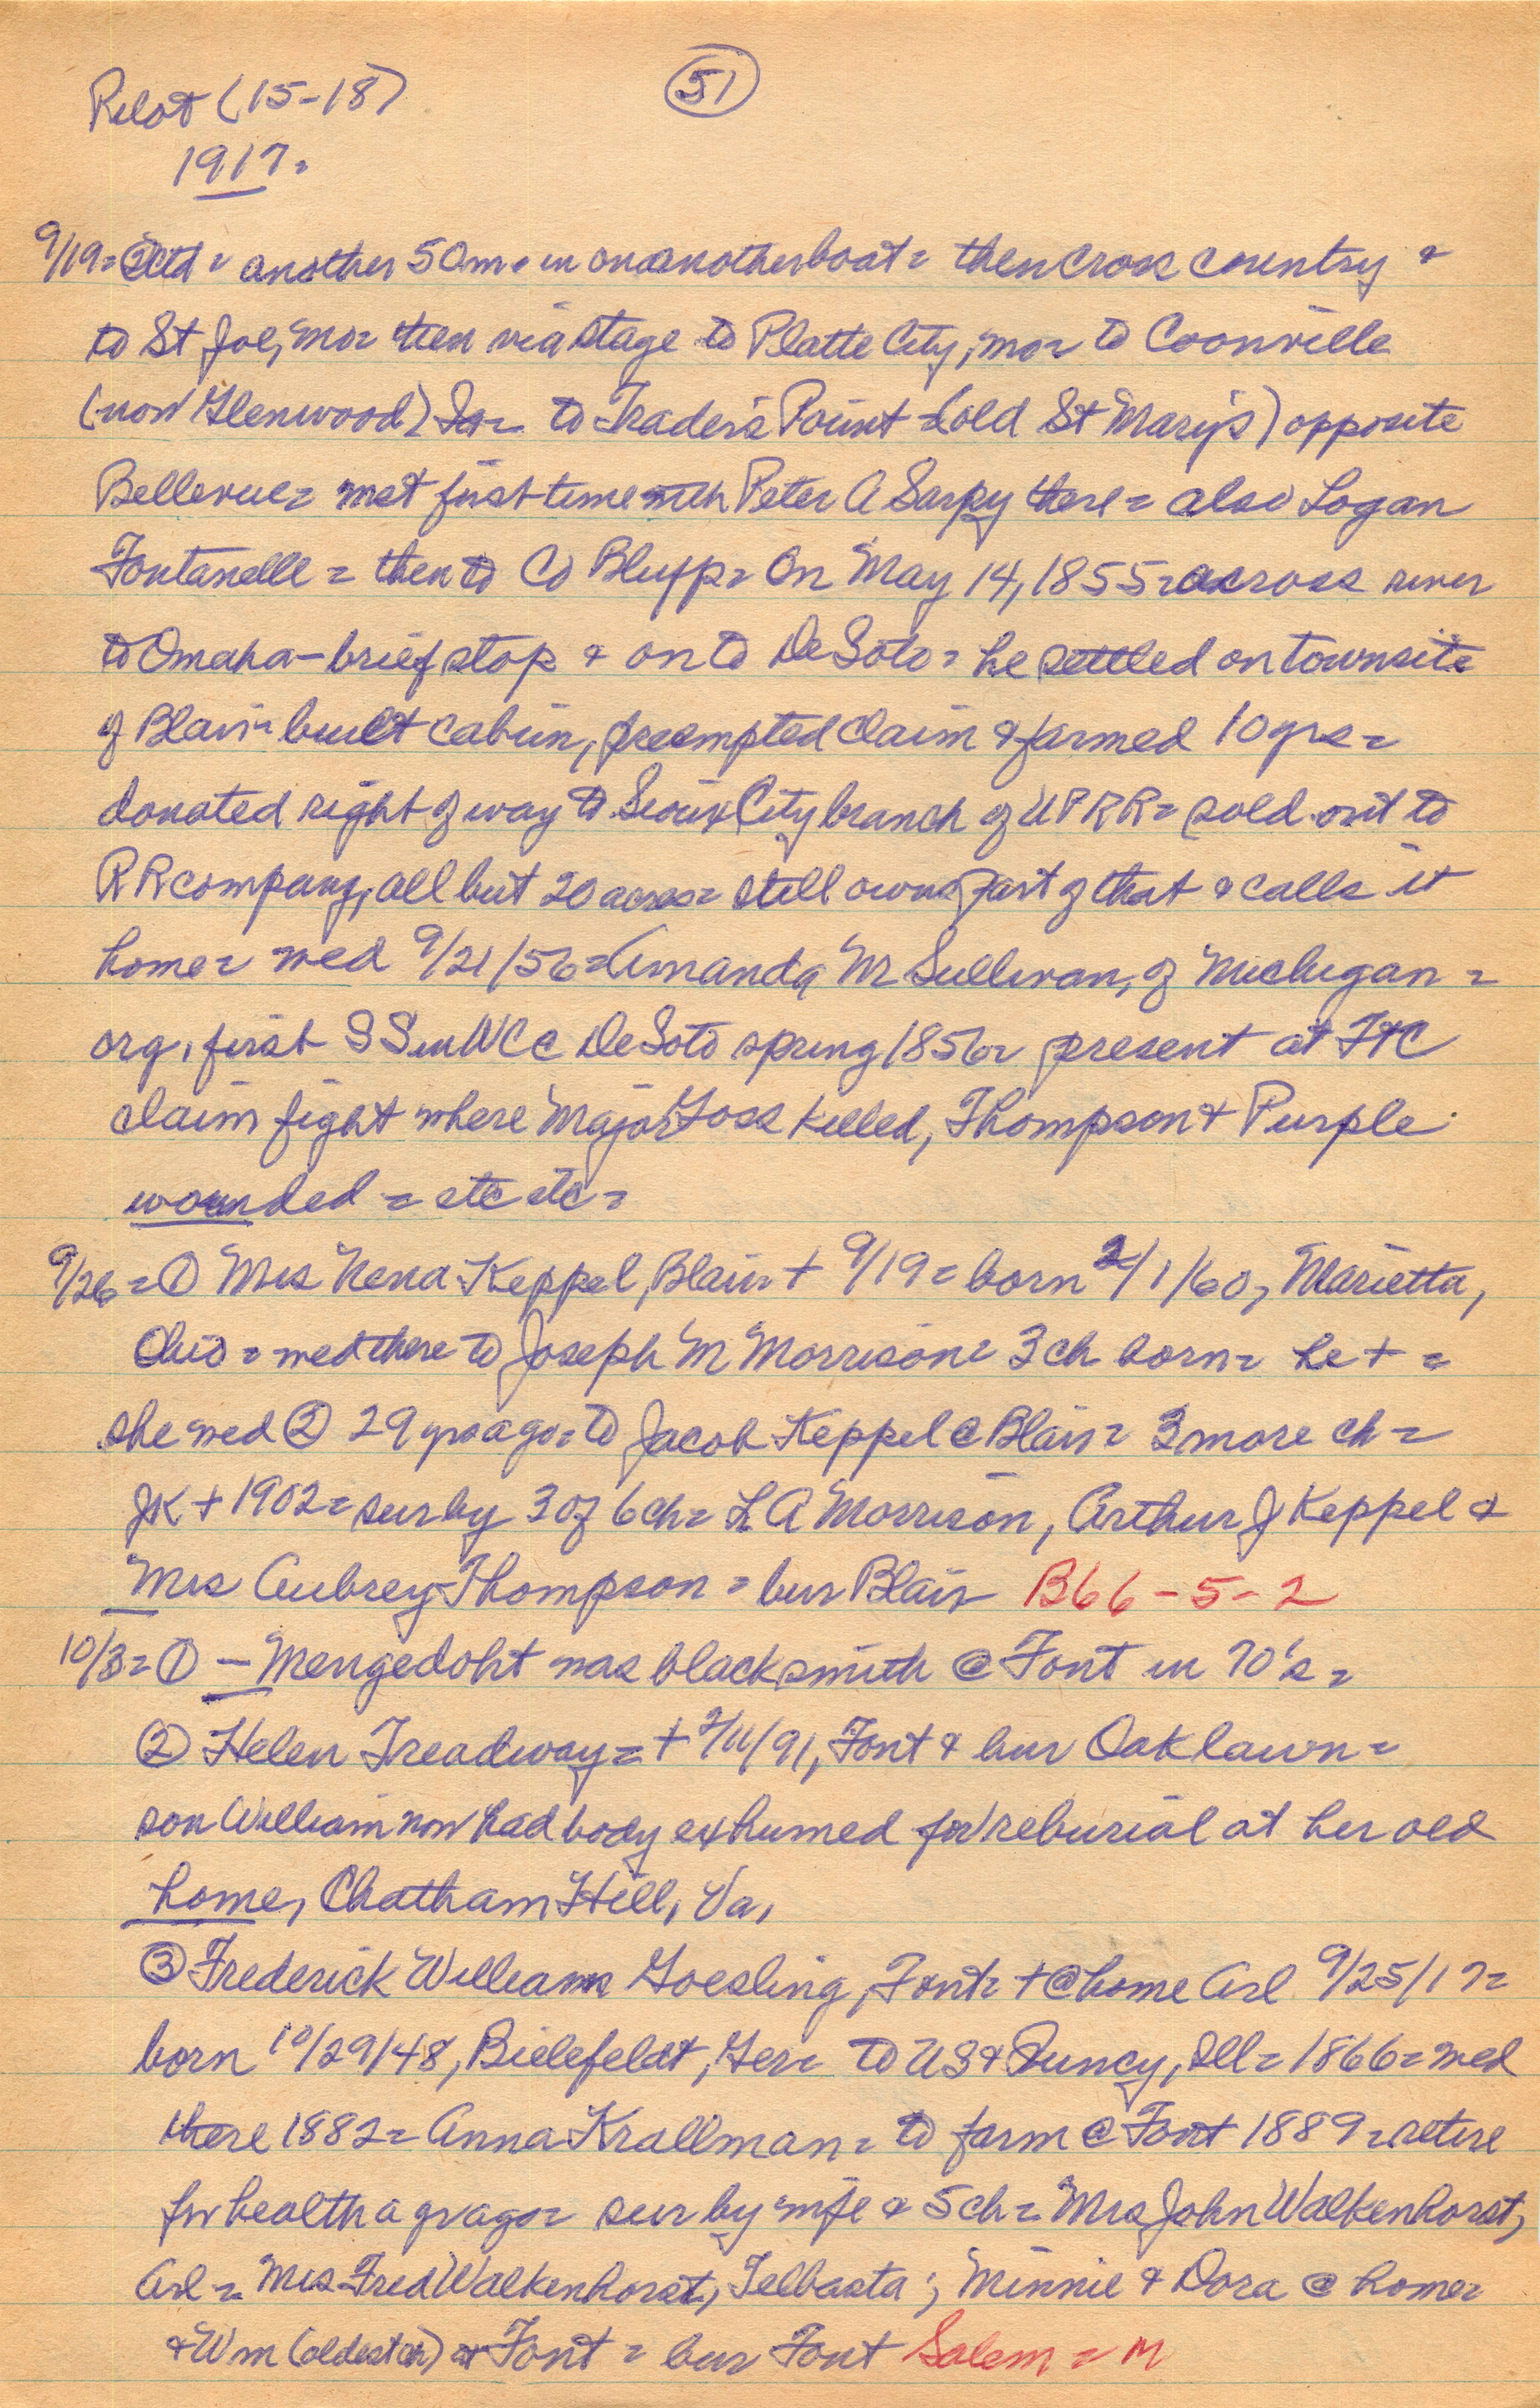 Pilot (15-18)
51
1917=
9/19= ②ctd = another 50 m. in on another boat = then cross country &
to St Joe, Mo= then via stage to Platte City, Mo= to Coonville
(now Glenwood) Ia= to Trader's Point = (old St Mary's) opposite
Bellevue= met first time with Peter A Sarpy there = also Logan
Fontanelle = then to Co Bluffs= On May 14, 1855= across river
to Omaha - brief stop & on to DeSoto= he settled on townsite
of Blair= built cabin, preempted claim & farmed 10 yrs=
donated right of way to Sioux City branch of UPRR= sold out to
RR company, all but 20 acres= still owns part of that & calls it
home= wed 9/21/56= Amanda M Sullivan, of Michigan =
org. first SS in WC @ DeSoto spring 1856= present at FtC
claim fight where Major Goss killed, Thompson & Purple
wounded = etc etc =
9/26 = ① Mrs Nena Keppel, Blair + 9/19 = born 2/1/60, Marietta,
Ohio = wed there to Joseph M Morrison= 3 ch born= he + =
she wed ② 29 yrs ago= to Jacob Keppel @ Blair= 3 more ch =
JK + 1902 = sur by 3 of 6 ch= L A Morrison, Arthur J Keppel &
Mrs Aubrey Thompson = bur Blair B66-5-2
10/3= ① — Mengedoht was blacksmith @ Font in 70's =
② Helen Treadway= + 2/11/91, Font & bur Oaklawn =
son William now had body exhumed for reburial at her old
home, Chatham Hill, Va,
③ Frederick William Goesling, Font= + @ home Arl 9/25/17=
born 10/29/48, Bielefeldt, Ger= to US & Quincy, Ill = 1866= wed
there 1882= Anna Krallman= to farm @ Font 1889 = retire
for health a yr ago= sur by wife & 5 ch = Mrs John Walkenhorst,
Arl = Mrs Fred Walkenhorst, Telbasta; Minnie & Dora @ home=
& Wm (oldest ch) at Font = bur Font Salem = M